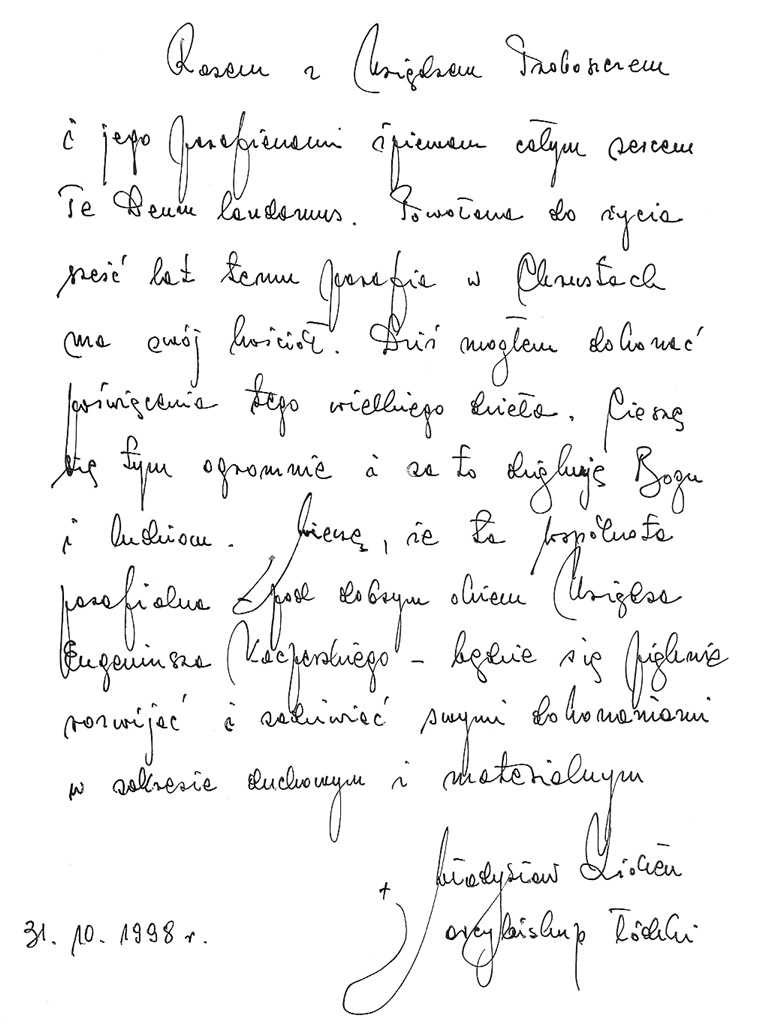 Razem z Księdzem Proboszczem
i jego parafianami śpiewam całym sercem
Te Deum laudamus. Powołana do życia
sześć lat temu parafia w Chrustach
ma swój kościół. Dziś mogłem dokonać
poświęcenia tego wielkiego dzieła. Cieszę
się tym ogromnie i za to dziękuję Bogu
i ludziom. Wierzę, że ta wspólnota
parafialna – pod dobrym okiem Księdza
Eugeniusza Kacperskiego – będzie się pięknie
rozwijać i zadziwiać swymi dokonaniami
w zakresie duchowym i materialnym
+ Władysław Ziółek
31. 10. 1998 r. arcybiskup łódzki